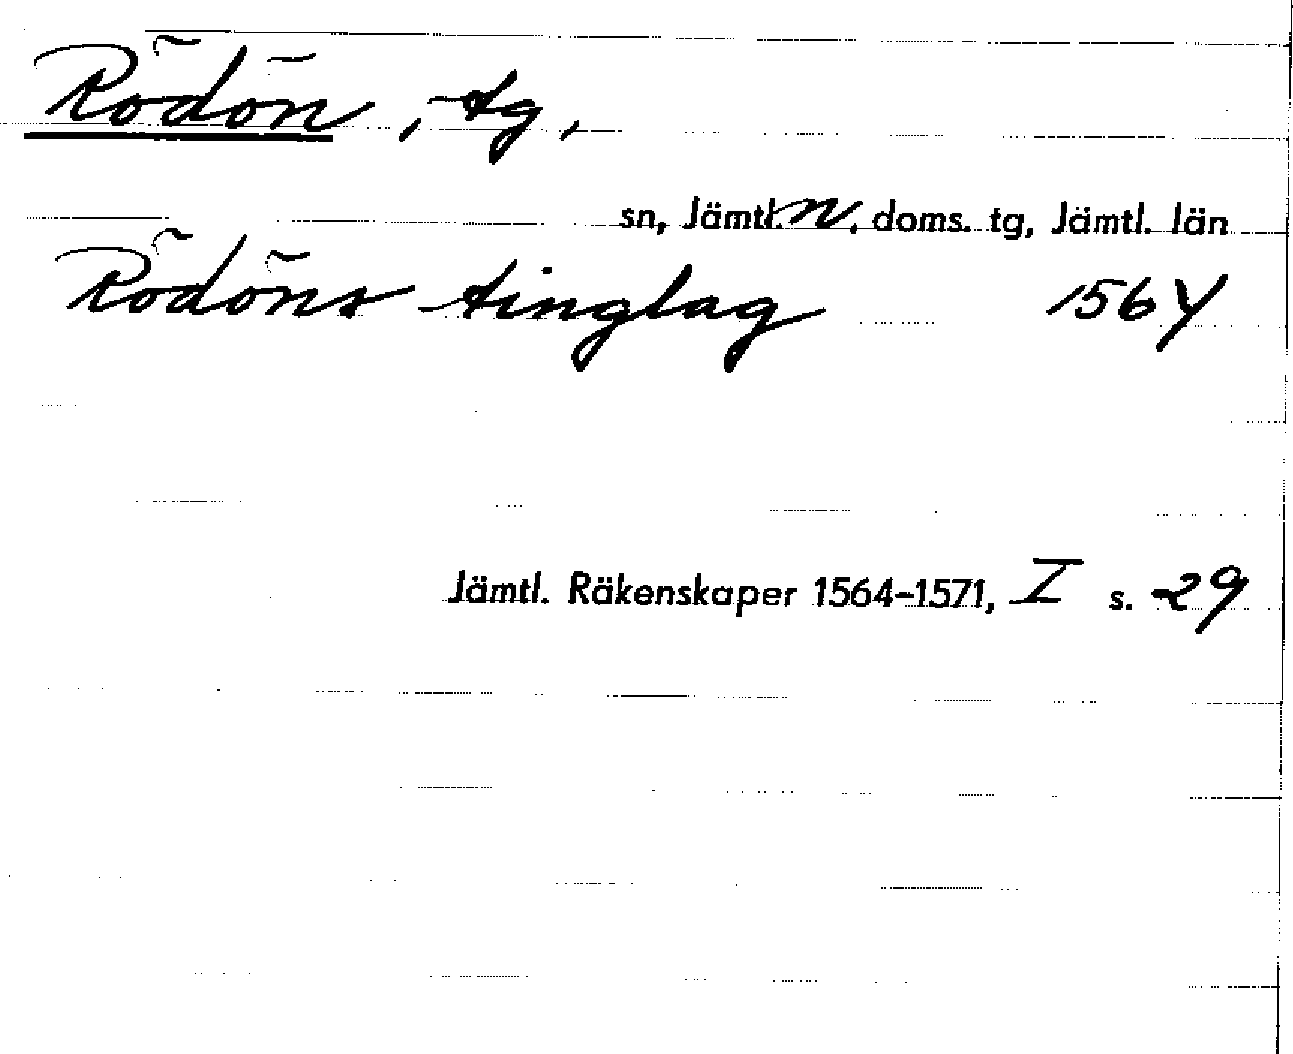 Rödön, tg,
sn, Jämtl. n. doms. tg, Jämtl. län
Rödöns tinglag 1564
Jämtl. Räkenskaper 1564-1571, I s. 29